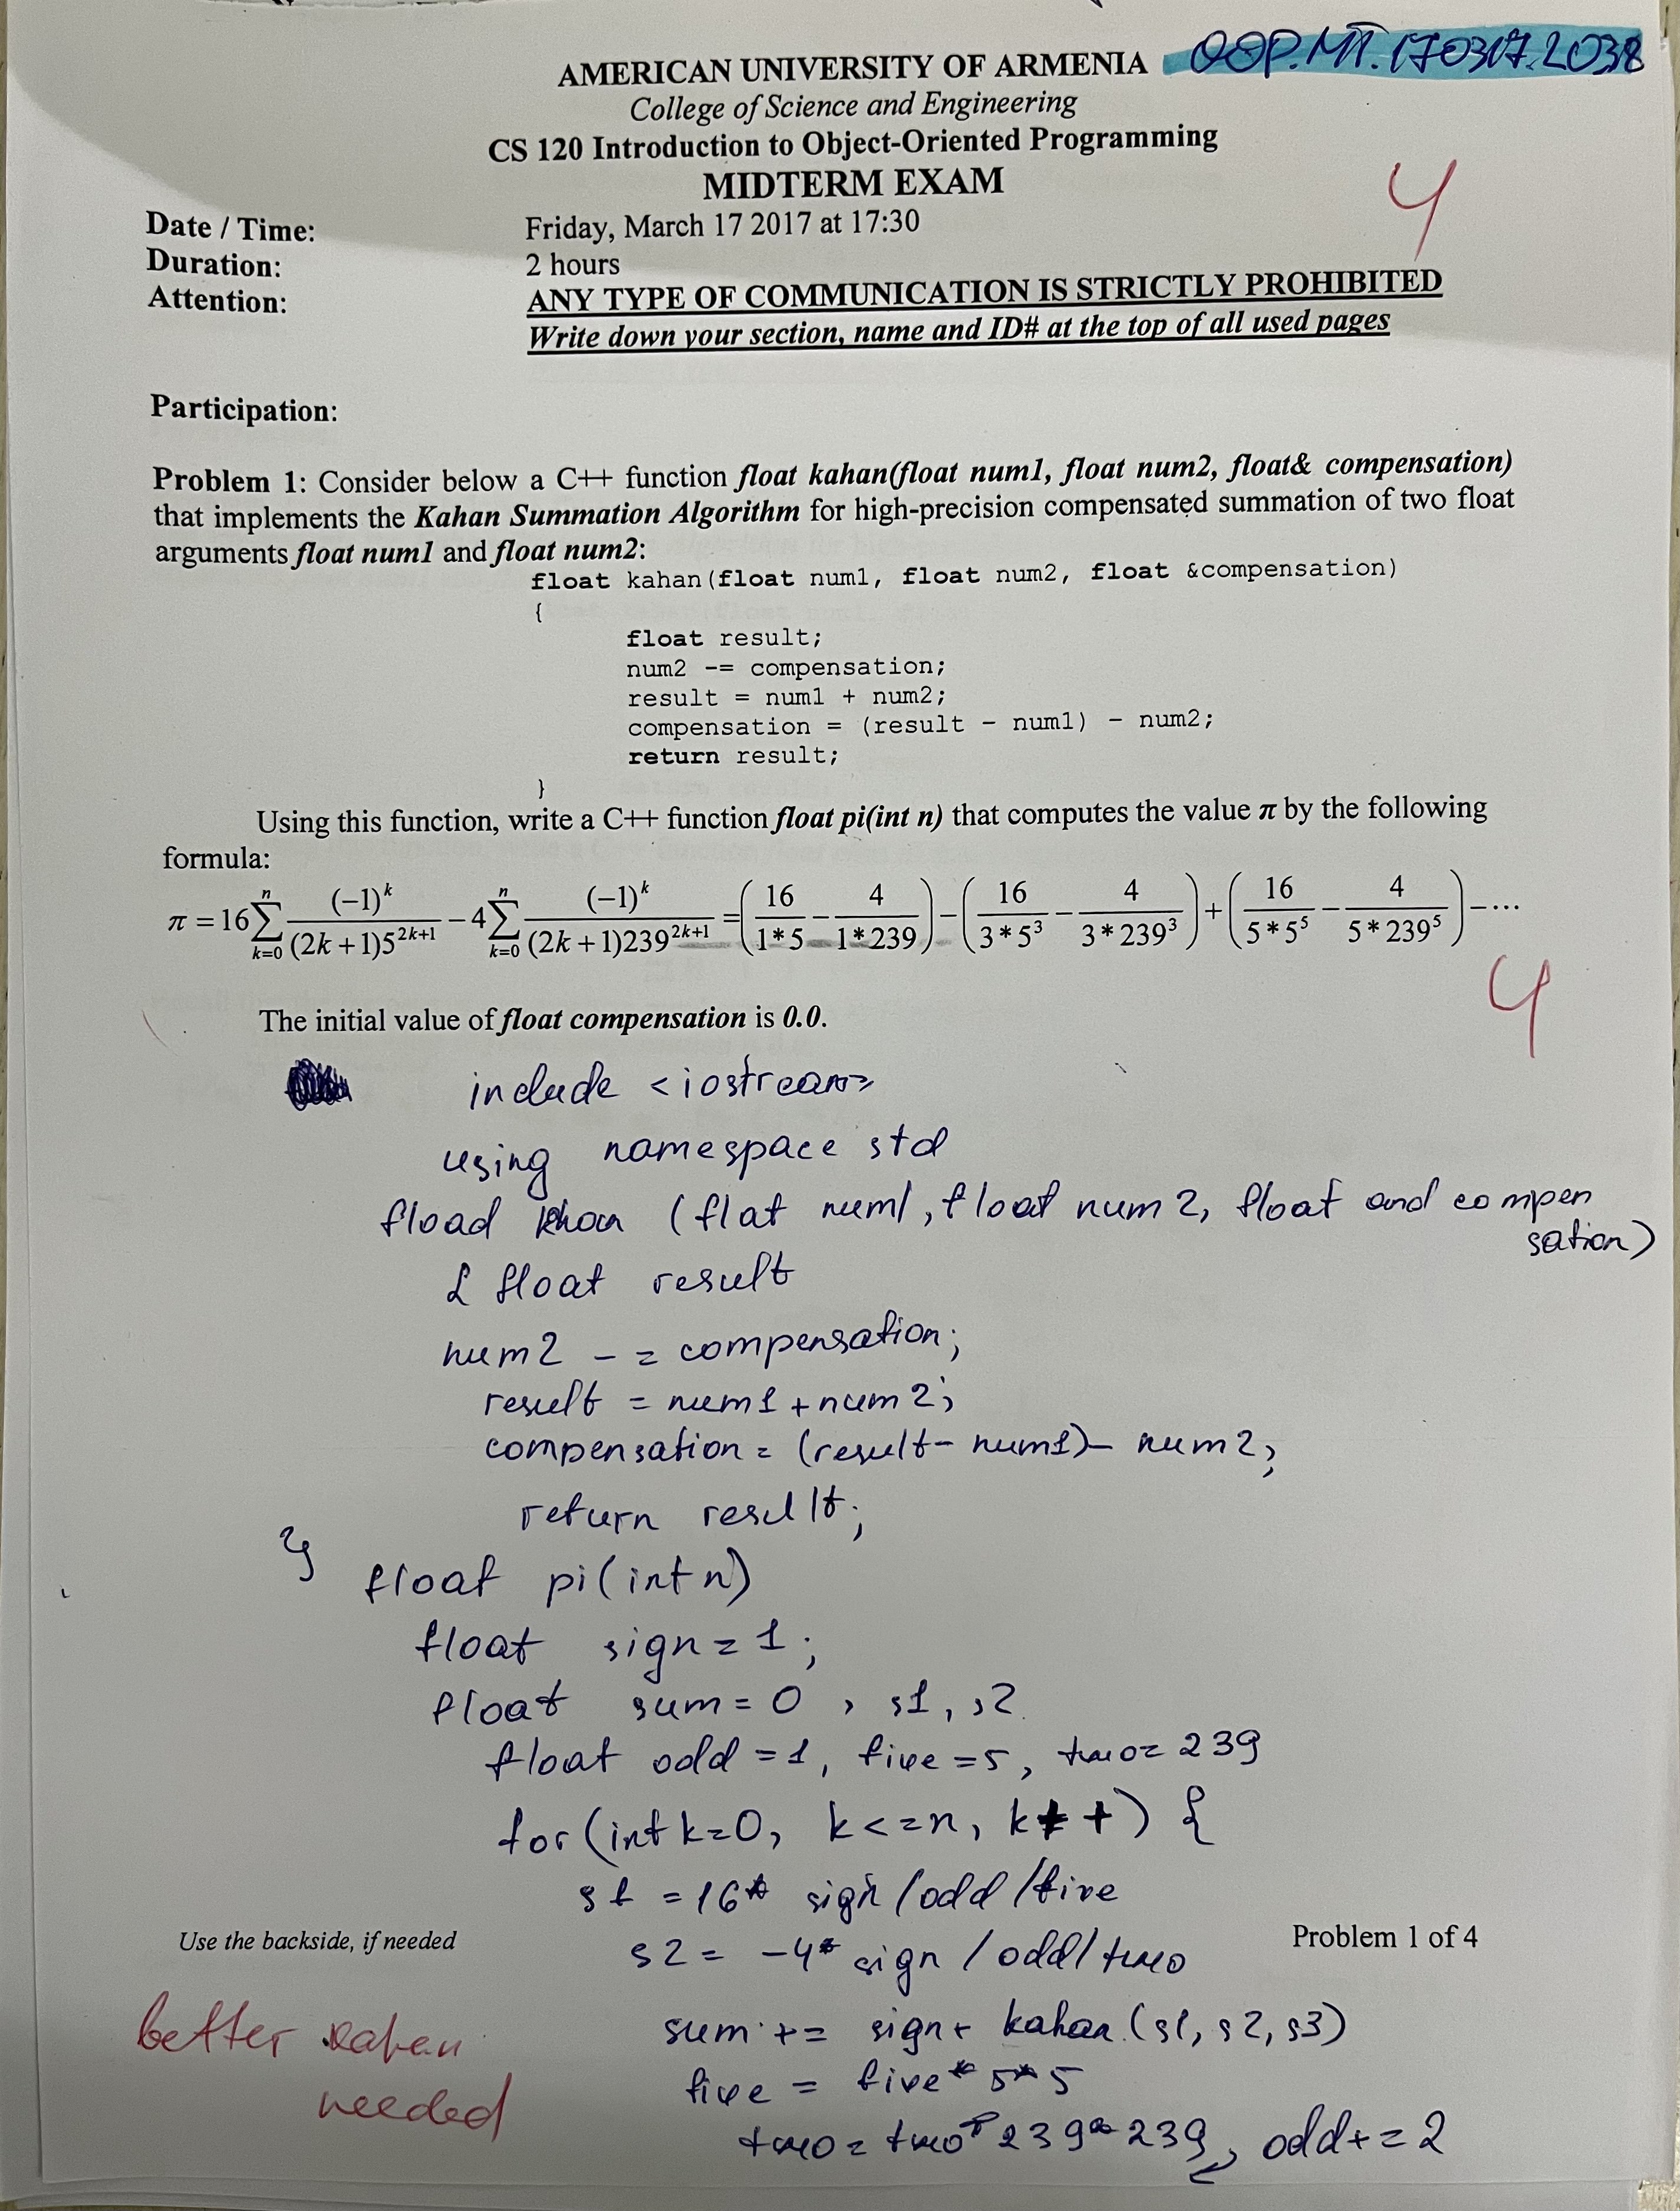 OOP.MT.170317.2038
AMERICAN UNIVERSITY OF ARMENIA
College of Science and Engineering
CS 120 Introduction to Object-Oriented Programming
MIDTERM EXAM
4
Date / Time: Friday, March 17 2017 at 17:30
Duration: 2 hours
Attention: ANY TYPE OF COMMUNICATION IS STRICTLY PROHIBITED
Write down your section, name and ID# at the top of all used pages
Participation:
Problem 1: Consider below a C++ function float kahan(float num1, float num2, float& compensation)
that implements the Kahan Summation Algorithm for high-precision compensated summation of two float
arguments float num1 and float num2:
float kahan(float num1, float num2, float &compensation)
{
float result;
num2 -= compensation;
result = num1 + num2;
compensation = (result - num1) - num2;
return result;
}
Using this function, write a C++ function float pi(int n) that computes the value π by the following
formula:
π = 16 ∑_{k=0}^{n} (-1)^k / ((2k+1)5^{2k+1}) − 4 ∑_{k=0}^{n} (-1)^k / ((2k+1)239^{2k+1}) = (16/(1*5) − 4/(1*239)) − (16/(3*5^3) − 4/(3*239^3)) + (16/(5*5^5) − 4/(5*239^5)) − ⋯
4
The initial value of float compensation is 0.0.
include <iostream>
using namespace std
fload khan (flat num1, float num2, float and compen
sation)
{ float result
num2 -= compensation;
result = num1 + num2;
compensation = (result - num1) - num2;
return result;
}
float pi(int n)
float sign = 1;
float sum = 0, s1, s2
float odd = 1, five = 5, two = 239
for (int k=0, k<=n, k++) {
s1 = 16* sign /odd /five
s2 = -4* sign /odd/two
sum += sign* kahan (s1, s2, s3)
five = five * 5*5
two = two * 239*239, odd += 2
Use the backside, if needed
Problem 1 of 4
better kahan
needed